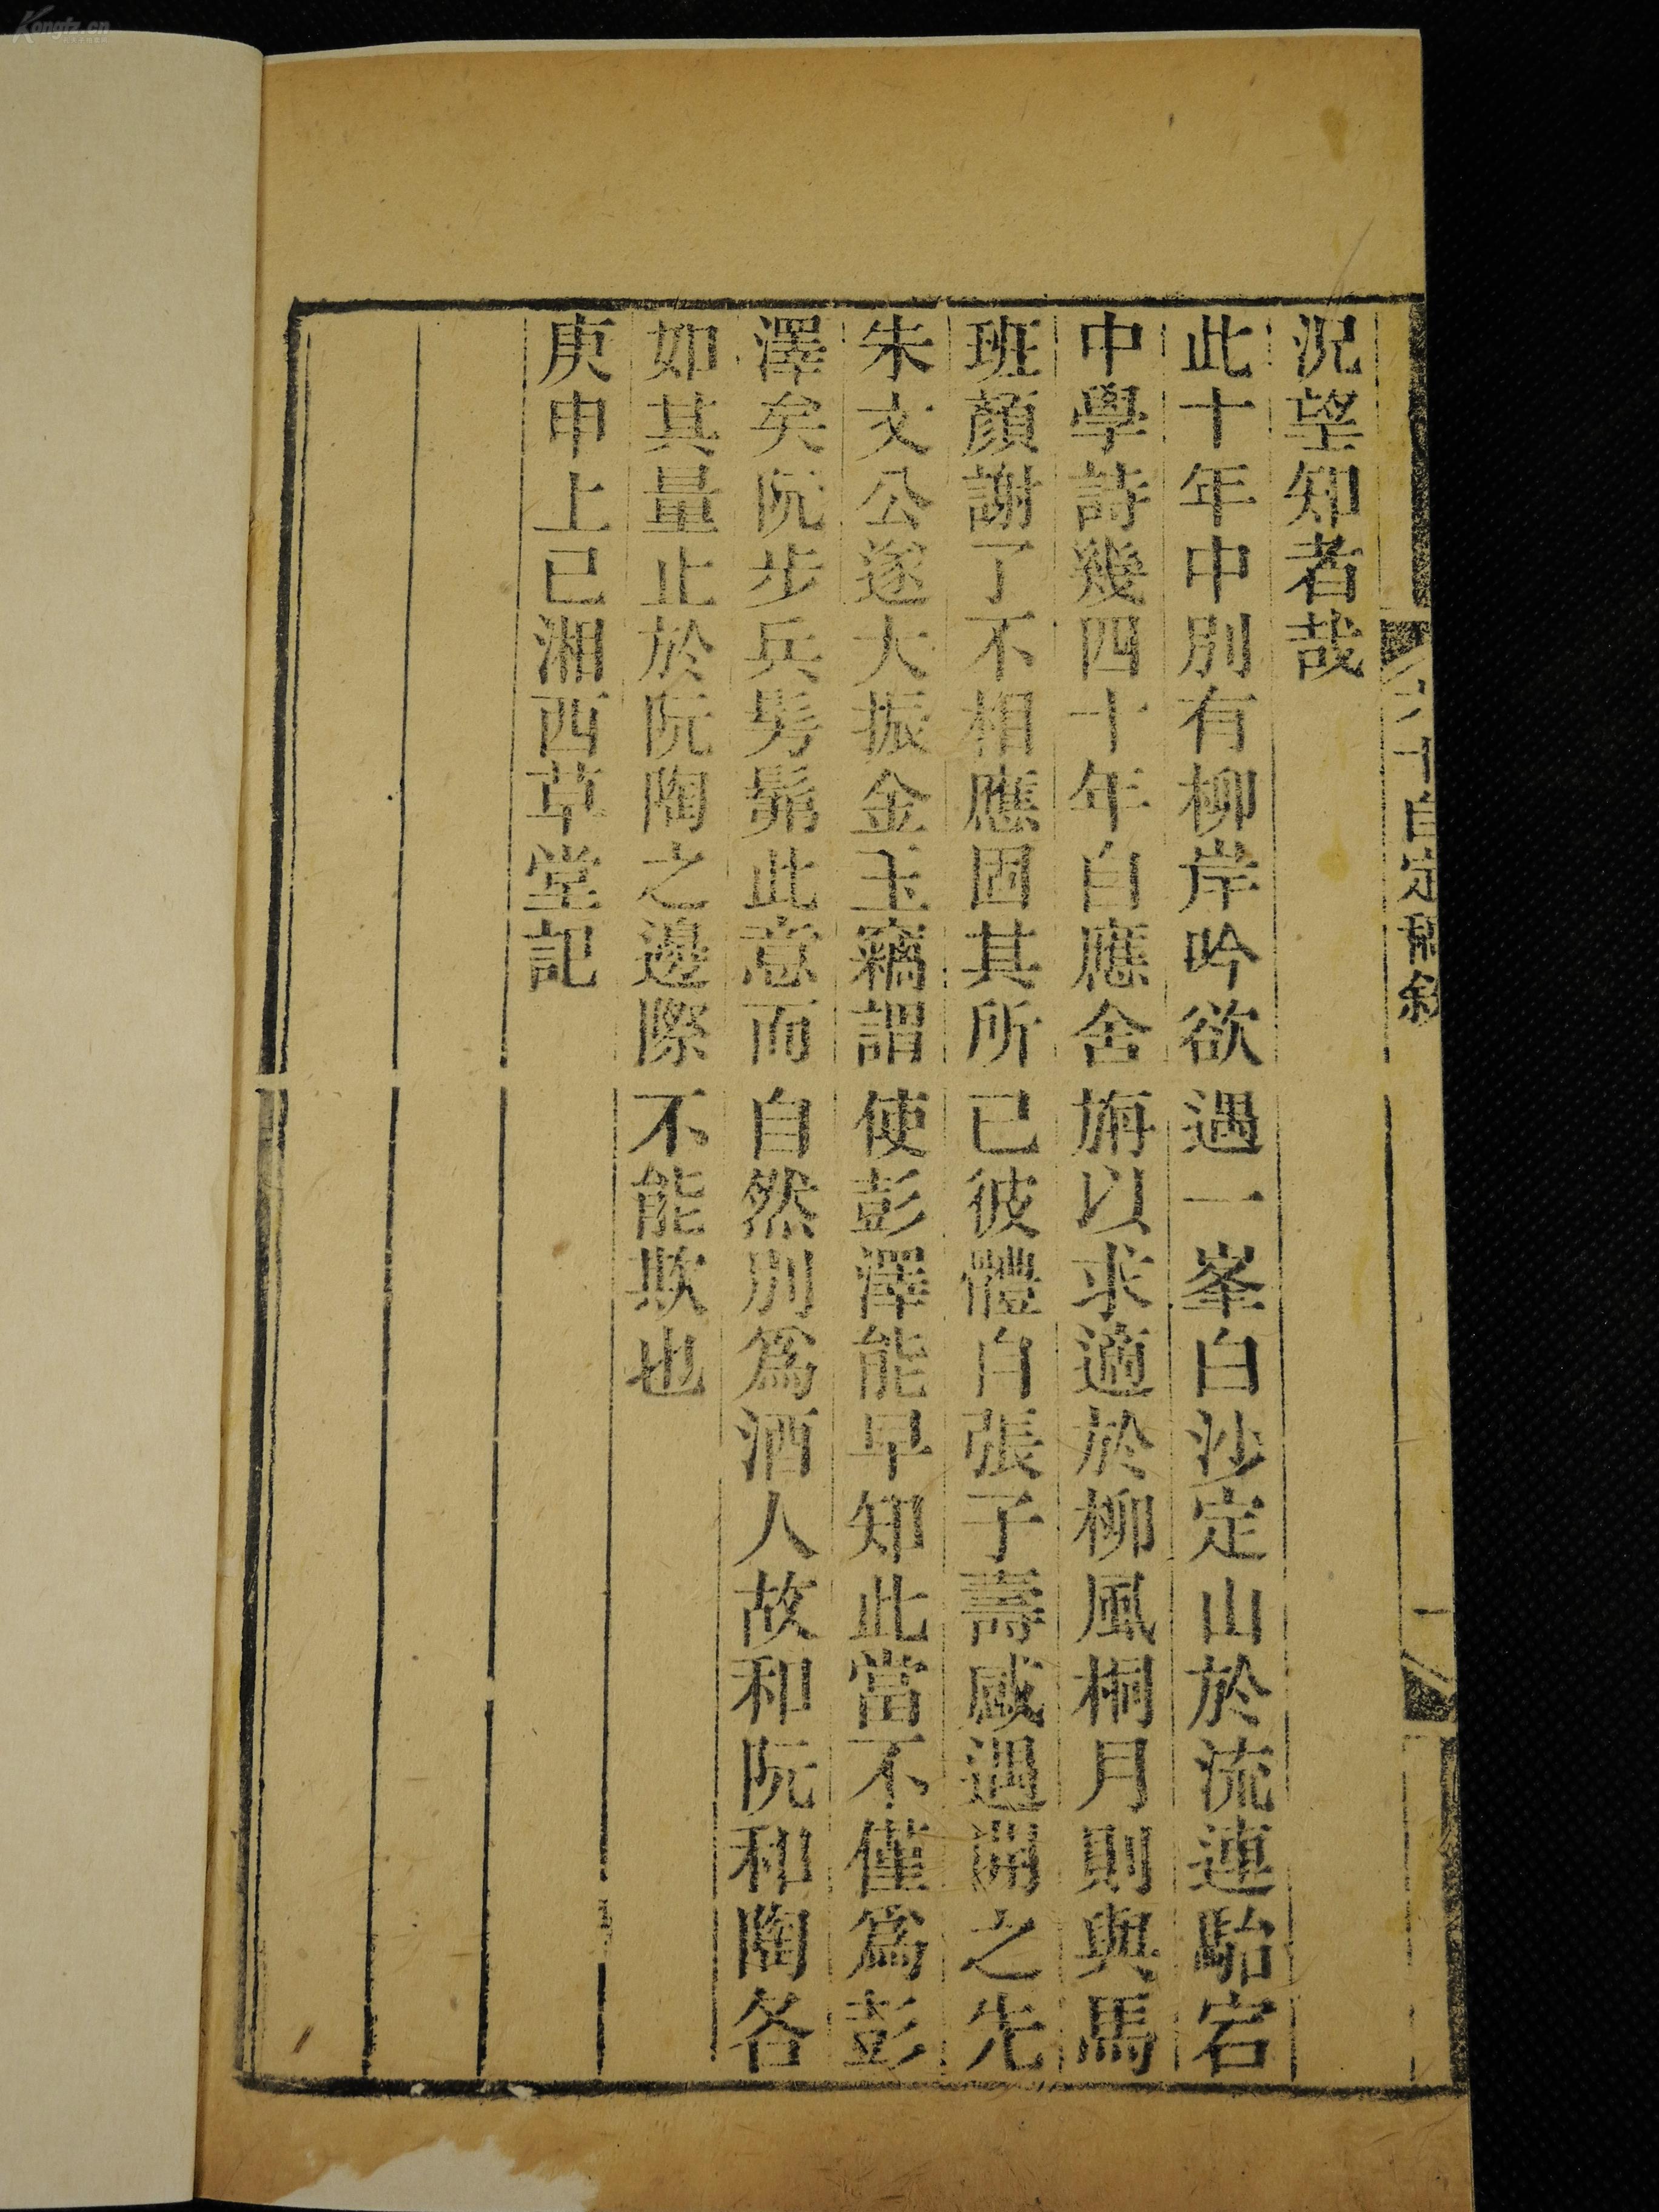 况望知者哉
此十年中別有柳岸吟欲遇一峯白沙定山於流連駘宕
中學詩幾四十年自應舍旃以求適於柳風桐月則與馬
班顏謝了不相應固其所已彼體自張子壽感遇開之先
朱文公遂大振金玉竊謂使彭澤能早知此當不僅爲彭
澤矣阮步兵髣髴此意而自然別爲酒人故和阮和陶各
如其量止於阮陶之邊際不能欺也
庚申上巳湘西草堂記
六十自定稿敘
一
Kongfz.cn